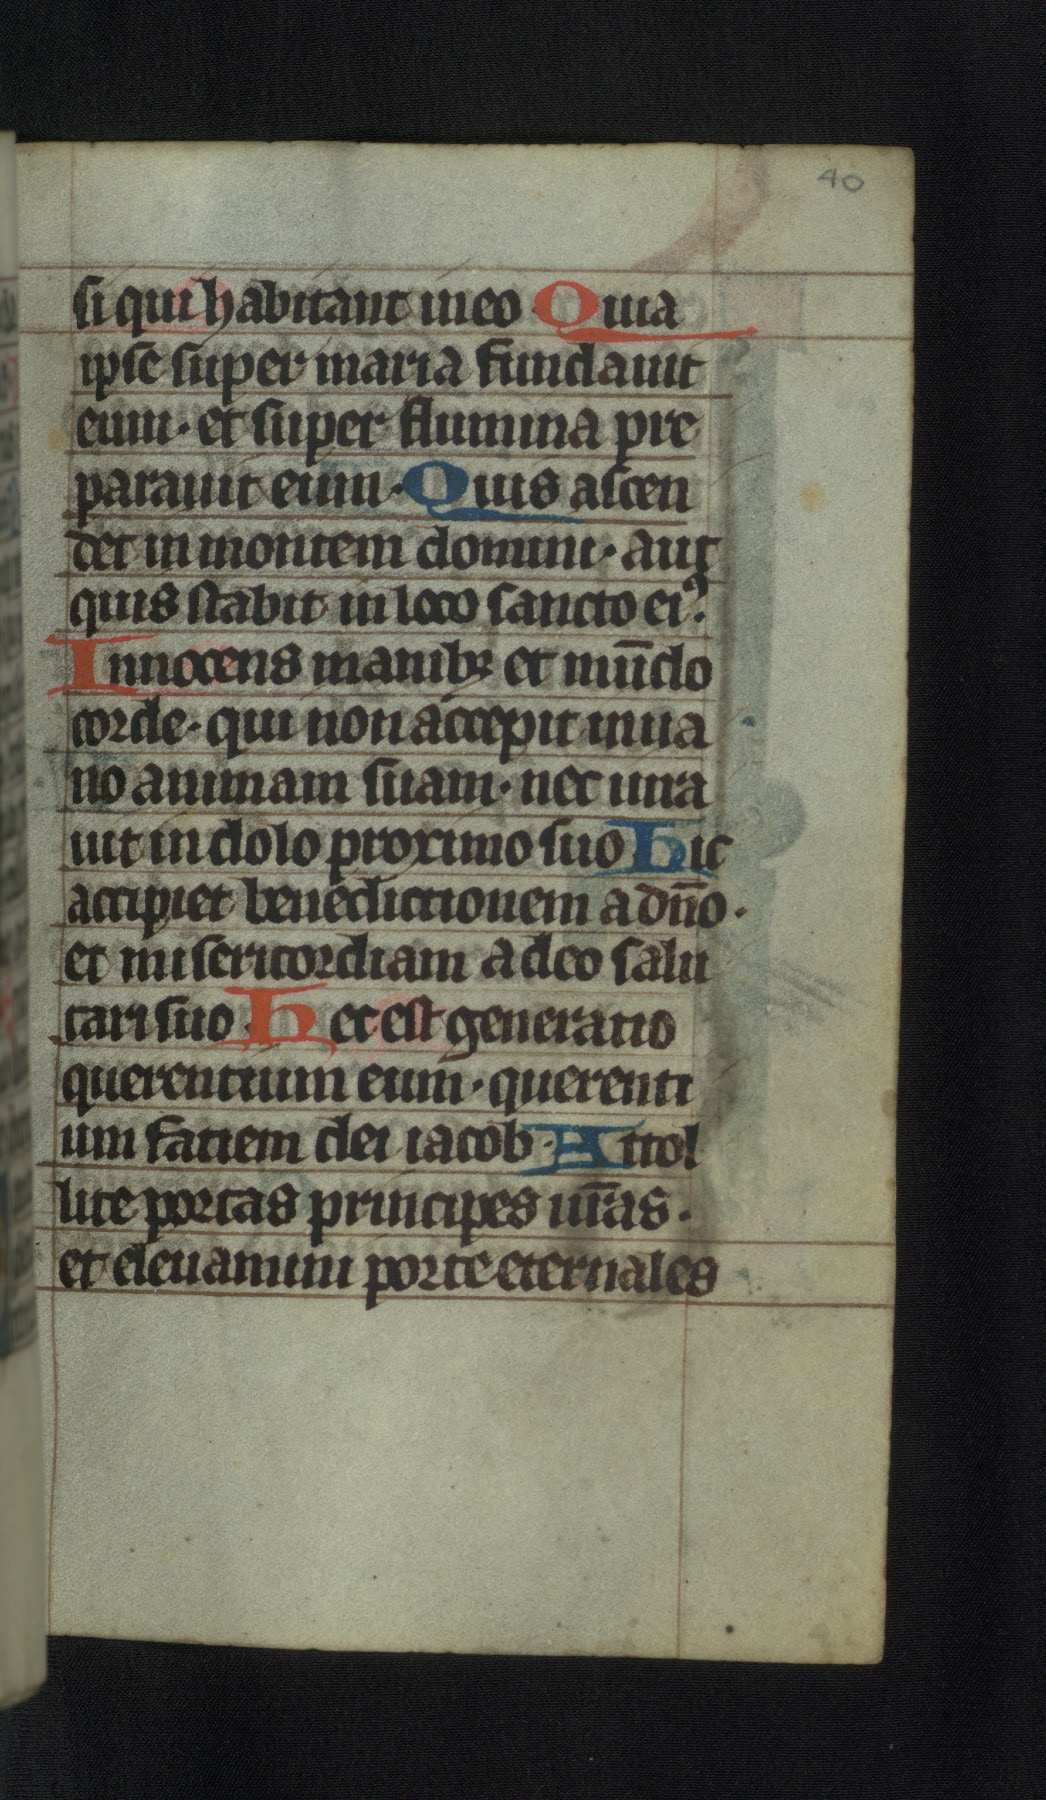 40
si qui habitant in eo · Quia
ipse super maria fundauit
eum · et super flumina pre
parauit eum · Quis ascen
det in montem domini · aut
quis stabit in loco sancto eiꝰ ·
Innocens manibꝫ et mūdo
corde · qui non accepit in ua
no animam suam · nec iura
uit in dolo proximo suo Hic
accipiet benedictionem a dn̄o ·
et misericordiam a deo salu
tari suo · Hec est generatio
querentium eum · querenti
um faciem dei iacob · Attol
lite portas principes ur̄as ·
et eleuamini porte eternales